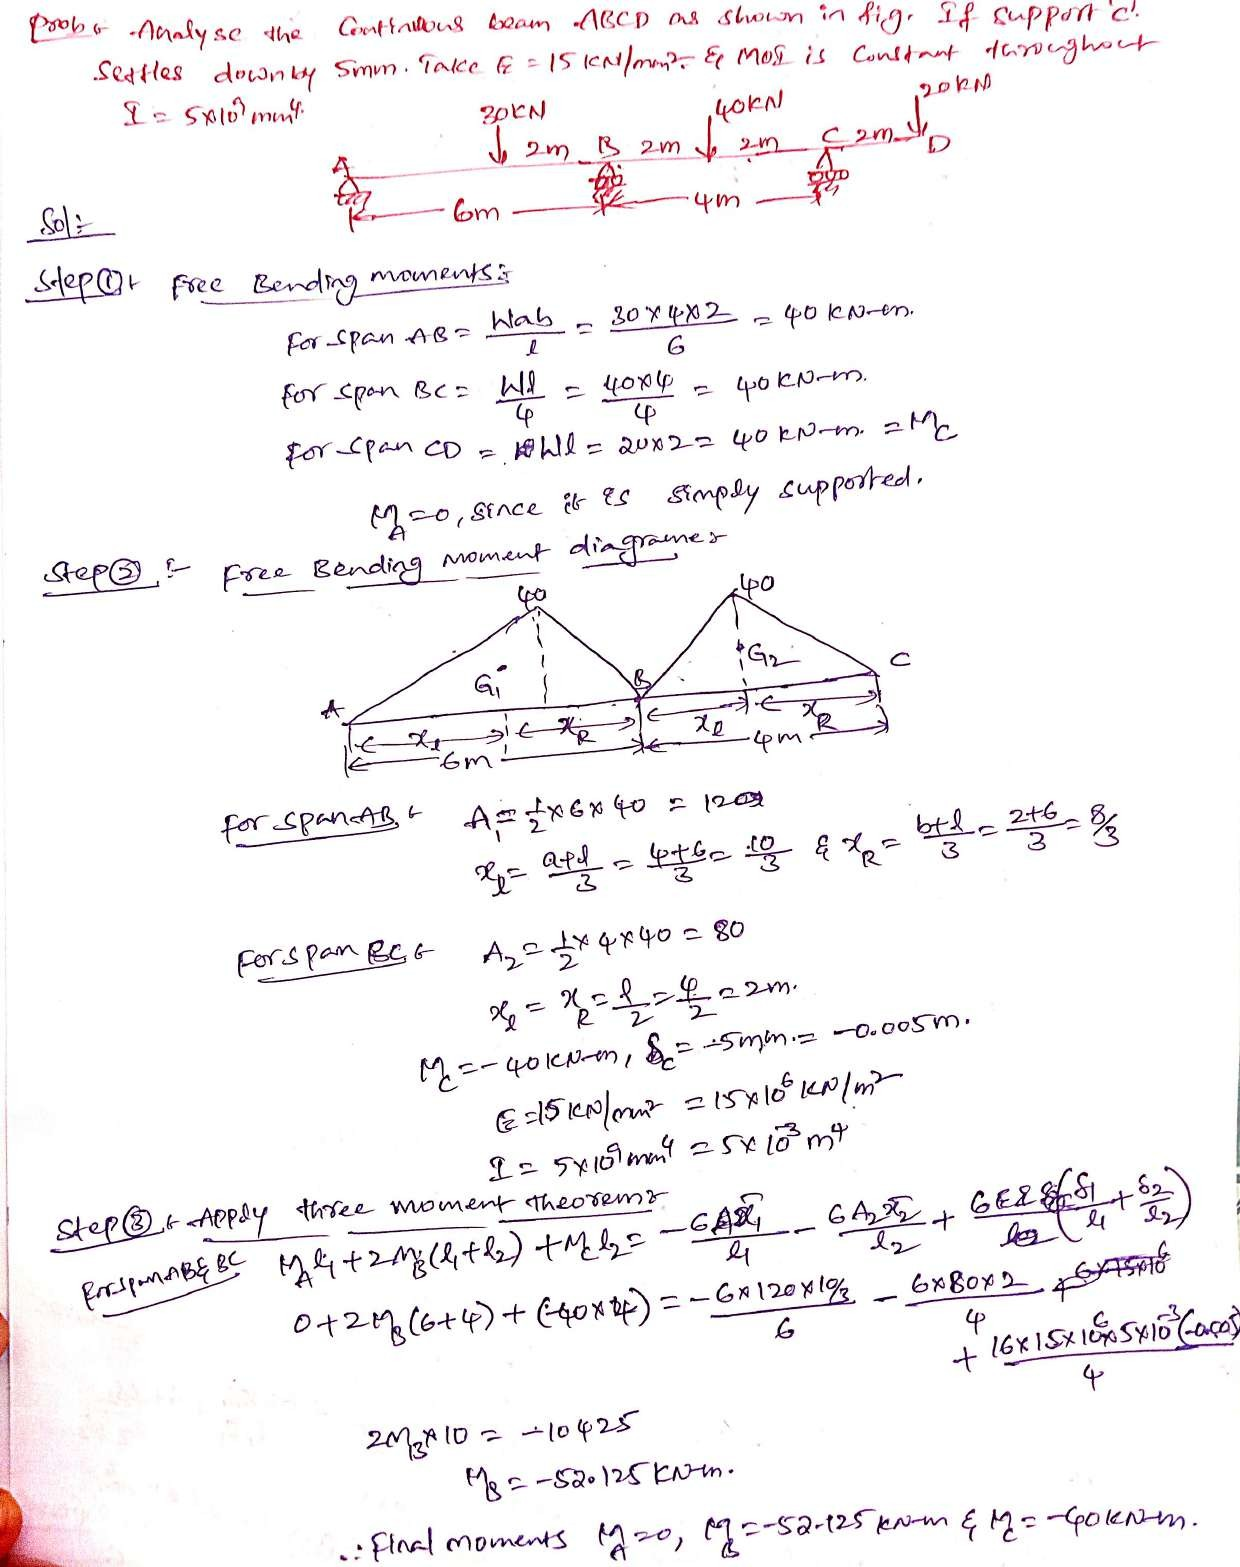 Prob:- Analyse the Continuous beam ABCD as shown in fig. If support 'c'
Settles down by 5mm. Take E = 15 kN/mm² & MOI is Constant throughout
I = 5x10⁹ mm⁴.
30KN 40KN 20KN
A 2m B 2m 2m C 2m D
6m 4m
Sol:-
Step ① :- Free Bending moments:-
For span AB = Wab/l = 30x4x2/6 = 40 KN-m.
for span BC = Wl/4 = 40x4/4 = 40 KN-m.
for span CD = Wl = 20x2 = 40 KN-m. = Mc
M_A = 0, since it is simply supported.
Step ② :- Free Bending moment diagrame:-
40 40
G₁ G₂
A B C
x_l x_R x_l x_R
6m 4m
for span AB :- A₁ = ½ x 6 x 40 = 120
x_l = a+l/3 = 4+6/3 = 10/3 & x_R = b+l/3 = 2+6/3 = 8/3
for span BC :- A₂ = ½ x 4 x 40 = 80
x_l = x_R = l/2 = 4/2 = 2m.
M_C = -40 KN-m, δ_c = -5mm. = -0.005m.
E = 15 KN/mm² = 15x10⁶ KN/m²
I = 5x10⁹ mm⁴ = 5x10⁻³ m⁴
Step ③ :- Apply three moment theorem:-
For span AB & BC M_A l₁ + 2M_B (l₁+l₂) + M_C l₂ = -6A₁x̄₁/l₁ - 6A₂x̄₂/l₂ + 6EI (δ₁/l₁ + δ₂/l₂)
0 + 2M_B (6+4) + (-40x4) = -6x120x10/3/6 - 6x80x2/4
+ 16x15x10⁶x5x10⁻³(-0.005)/4
2M_B x 10 = -10425
M_B = -52.125 KN-m.
∴ Final moments M_A = 0, M_B = -52.125 KN-m & M_C = -40KN-m.